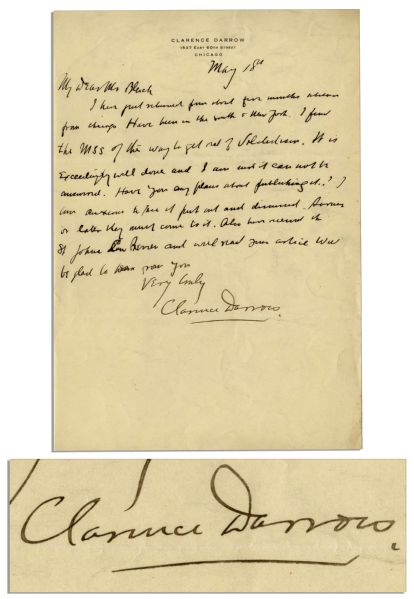 CLARENCE DARROW
1537 EAST 60TH STREET
CHICAGO
May 18th
My Dear Mr
I have just returned from about five months absence
from Chicago Have been in the south & New York. I find
the MSS of the way to get rid of It is
Exceedingly well done and I am sure it can not be
answered. Have you any plans about publishing it? I
am anxious to see it put out and discussed. Sooner
or later they must come to it. Also have received the
St Johns Law Review and will read your article Will
be glad to hear from you
Very truly
Clarence Darrow
Clarence Darrow